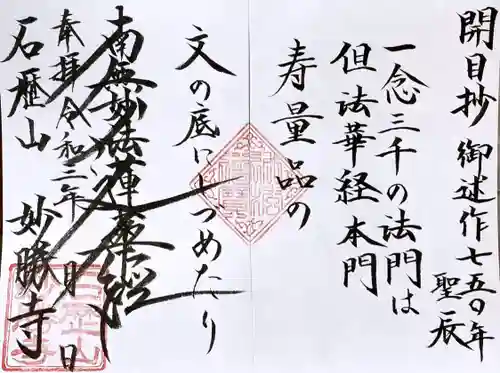 開目抄 御述作七五〇年
聖辰
一念三千の法門は
但法華経本門
寿量品の
文の底にしづめたり
南無妙法蓮華経
奉拝 令和三年 月 日
石歴山 妙勝寺